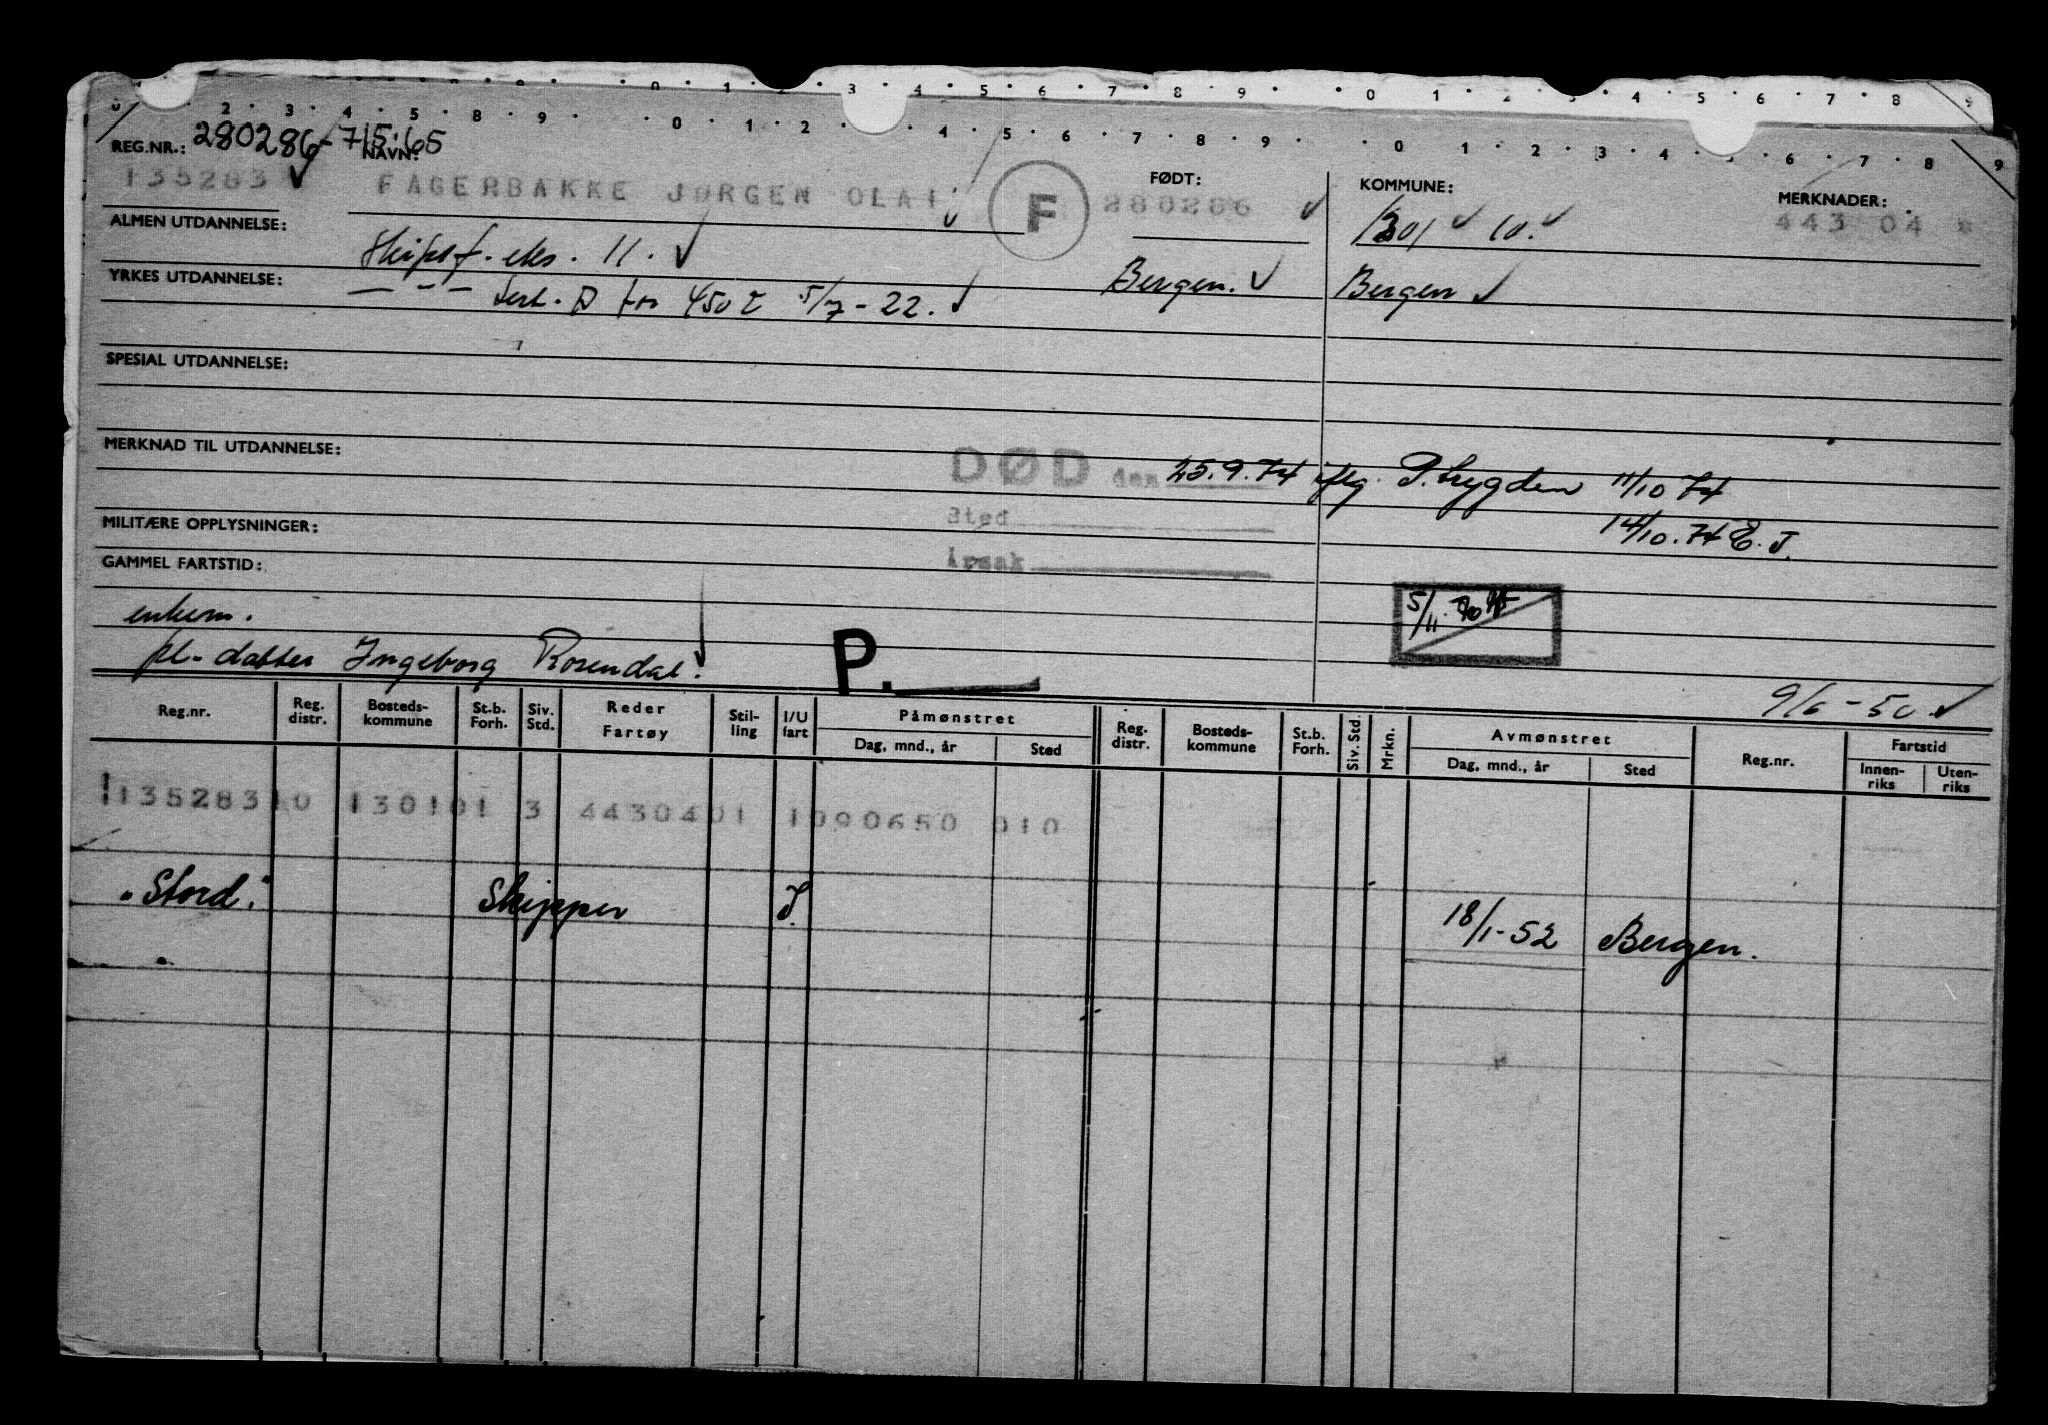 0 1 2 3 4 5 6 7 8 9 0 1 2 3 4 5 6 7 8 9
2 3 4 5 8 9 0 1 2 4 5 6 7 8 9 0 1 2 3 4 6 7 8 9
REG.NR.: 280286-715.65
NAVN: FØDT: KOMMUNE: MERKNADER:
135283 FAGERBAKKE JØRGEN OLAI F 280286 1301 10. 443 04
ALMEN UTDANNELSE: Skipsf. eks. 11.
YRKES UTDANNELSE: Sert. for 450 t 5/7-22. Bergen. Bergen
SPESIAL UTDANNELSE:
MERKNAD TIL UTDANNELSE:
DØD den 25.9.74 iflg. P. Lygden 11/10 74
MILITÆRE OPPLYSNINGER: Sted 14/10.74 E.J.
GAMMEL FARTSTID: Årsak
enkem. 5/11.70
pl. datter Ingeborg Rosendal. P.
9/6-50
Reg.nr. Reg. distr. Bosteds-kommune St.b. Forh. Siv. Std. Reder Fartøy Stil-ling I/U fart Påmønstret Dag, mnd., år Sted Reg. distr. Bosteds-kommune St.b. Forh. Siv. Std. Mrkn. Avmønstret Dag, mnd., år Sted Reg.nr. Fartstid Innen-riks Uten-riks
135283 10 130101 3 4430401 1090650 010
"Stord." Skipper I. 18/1-52 Bergen.